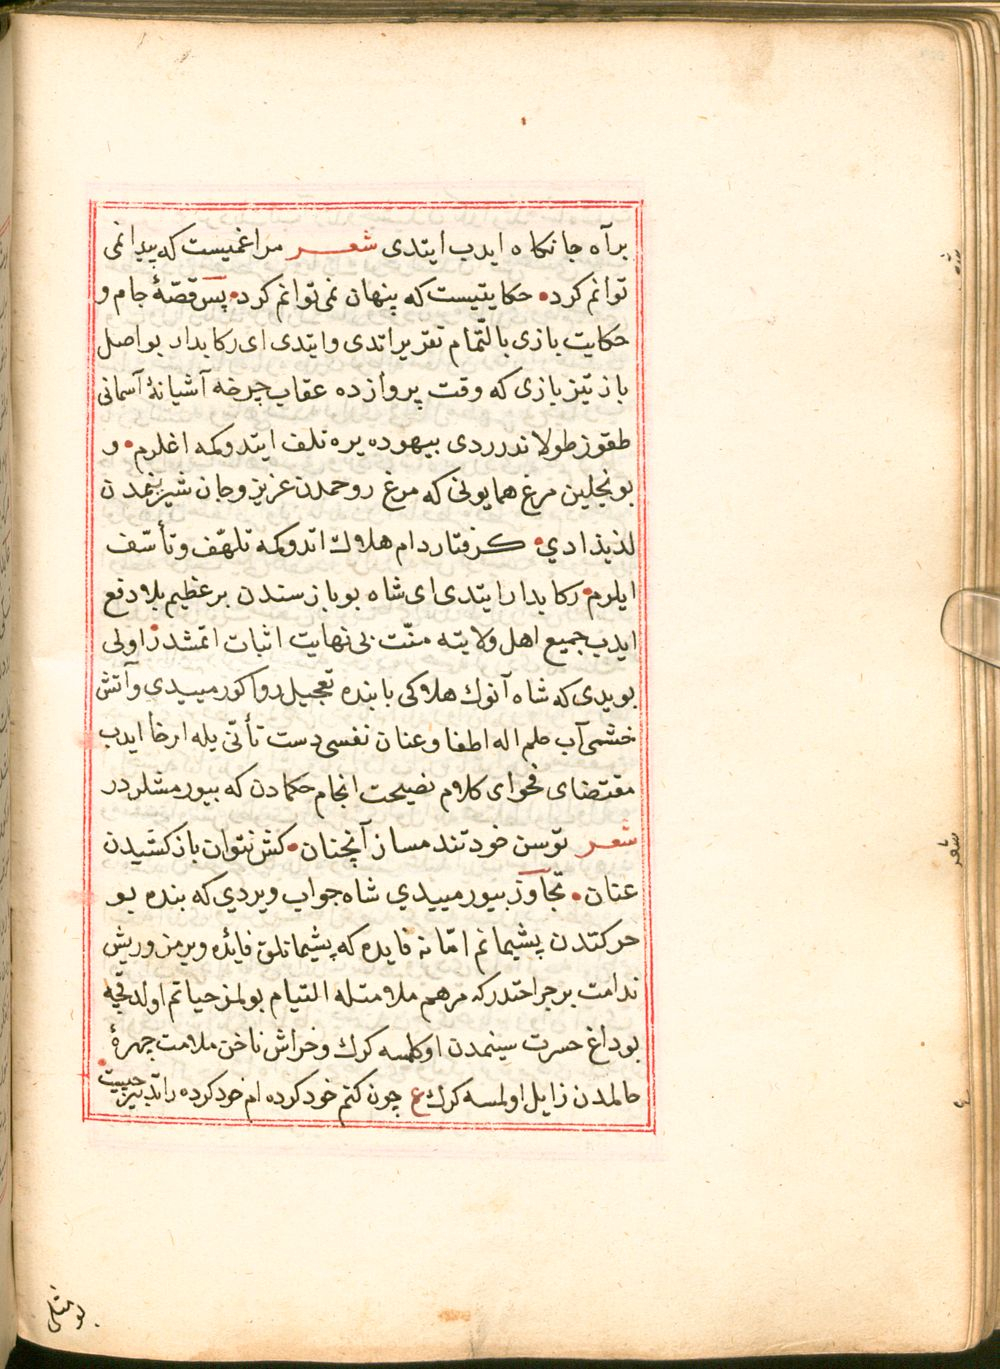 برآه جانکاه ایدب ایتدی شعر مراغمیست که پیدا نمی
توانم کرد• حکایتیست که پنهان نمی توانم کرد• پس قصّهٔ جام و
حکایت بازی بالتّمام تقریر اتدی وایتدی ای رکابدار بو اصل
باز تیز بازی که وقت پروازده عقاب چرخه آشیانهٔ آسمانی
طقوز طولاندرردی بیهوده یره تلف ایتدوکمه اغلرم• و
بونجلین مرغ همایونی که مرغ روحمدن عزیز وجان شیرینمدن
لذیذ ادي• کرفتار دام هلاك اتدوکمه تلهّف وتأسّف
ایلرم• رکابدار ایتدی ای شاه بو باز سندن بر عظیم بلا دفع
ایدب جمیع اهل ولایته منّت بی نهایت اثبات اتمشدر• اولی
بویدی که شاه آنوك هلاکی بابنده تعجیل روا کورمییدی وآتش
خشمی آب حلم اله اطفا وعنان نفسی دست تأنّی یله ارخا ایدب
مقتضای فحوای کلام نصیحت انجام حکمادن که بیورمشلردر
شعر توسن خود تند مساز آنچنان• کش نتوان باز کشیدن
عنان• تجاوز بیورمییدي شاه جواب ویردي که بنده بو
حرکتدن پشیمانم امّا نه فایده که پشیمانلق فائده ویرمز وریش
ندامت بر جراحتدر که مرهم ملامتله التیام بولمز حیاتم اولدقچه
بو داغ حسرت سینمدن اوکلمسه کرك وخراش ناخن ملامت چهرهٔ
حالمدن زایل اولمسه کرك ع چون کنم خود کرده ام خود کرده را تدبیر چیست•
شعر
ع